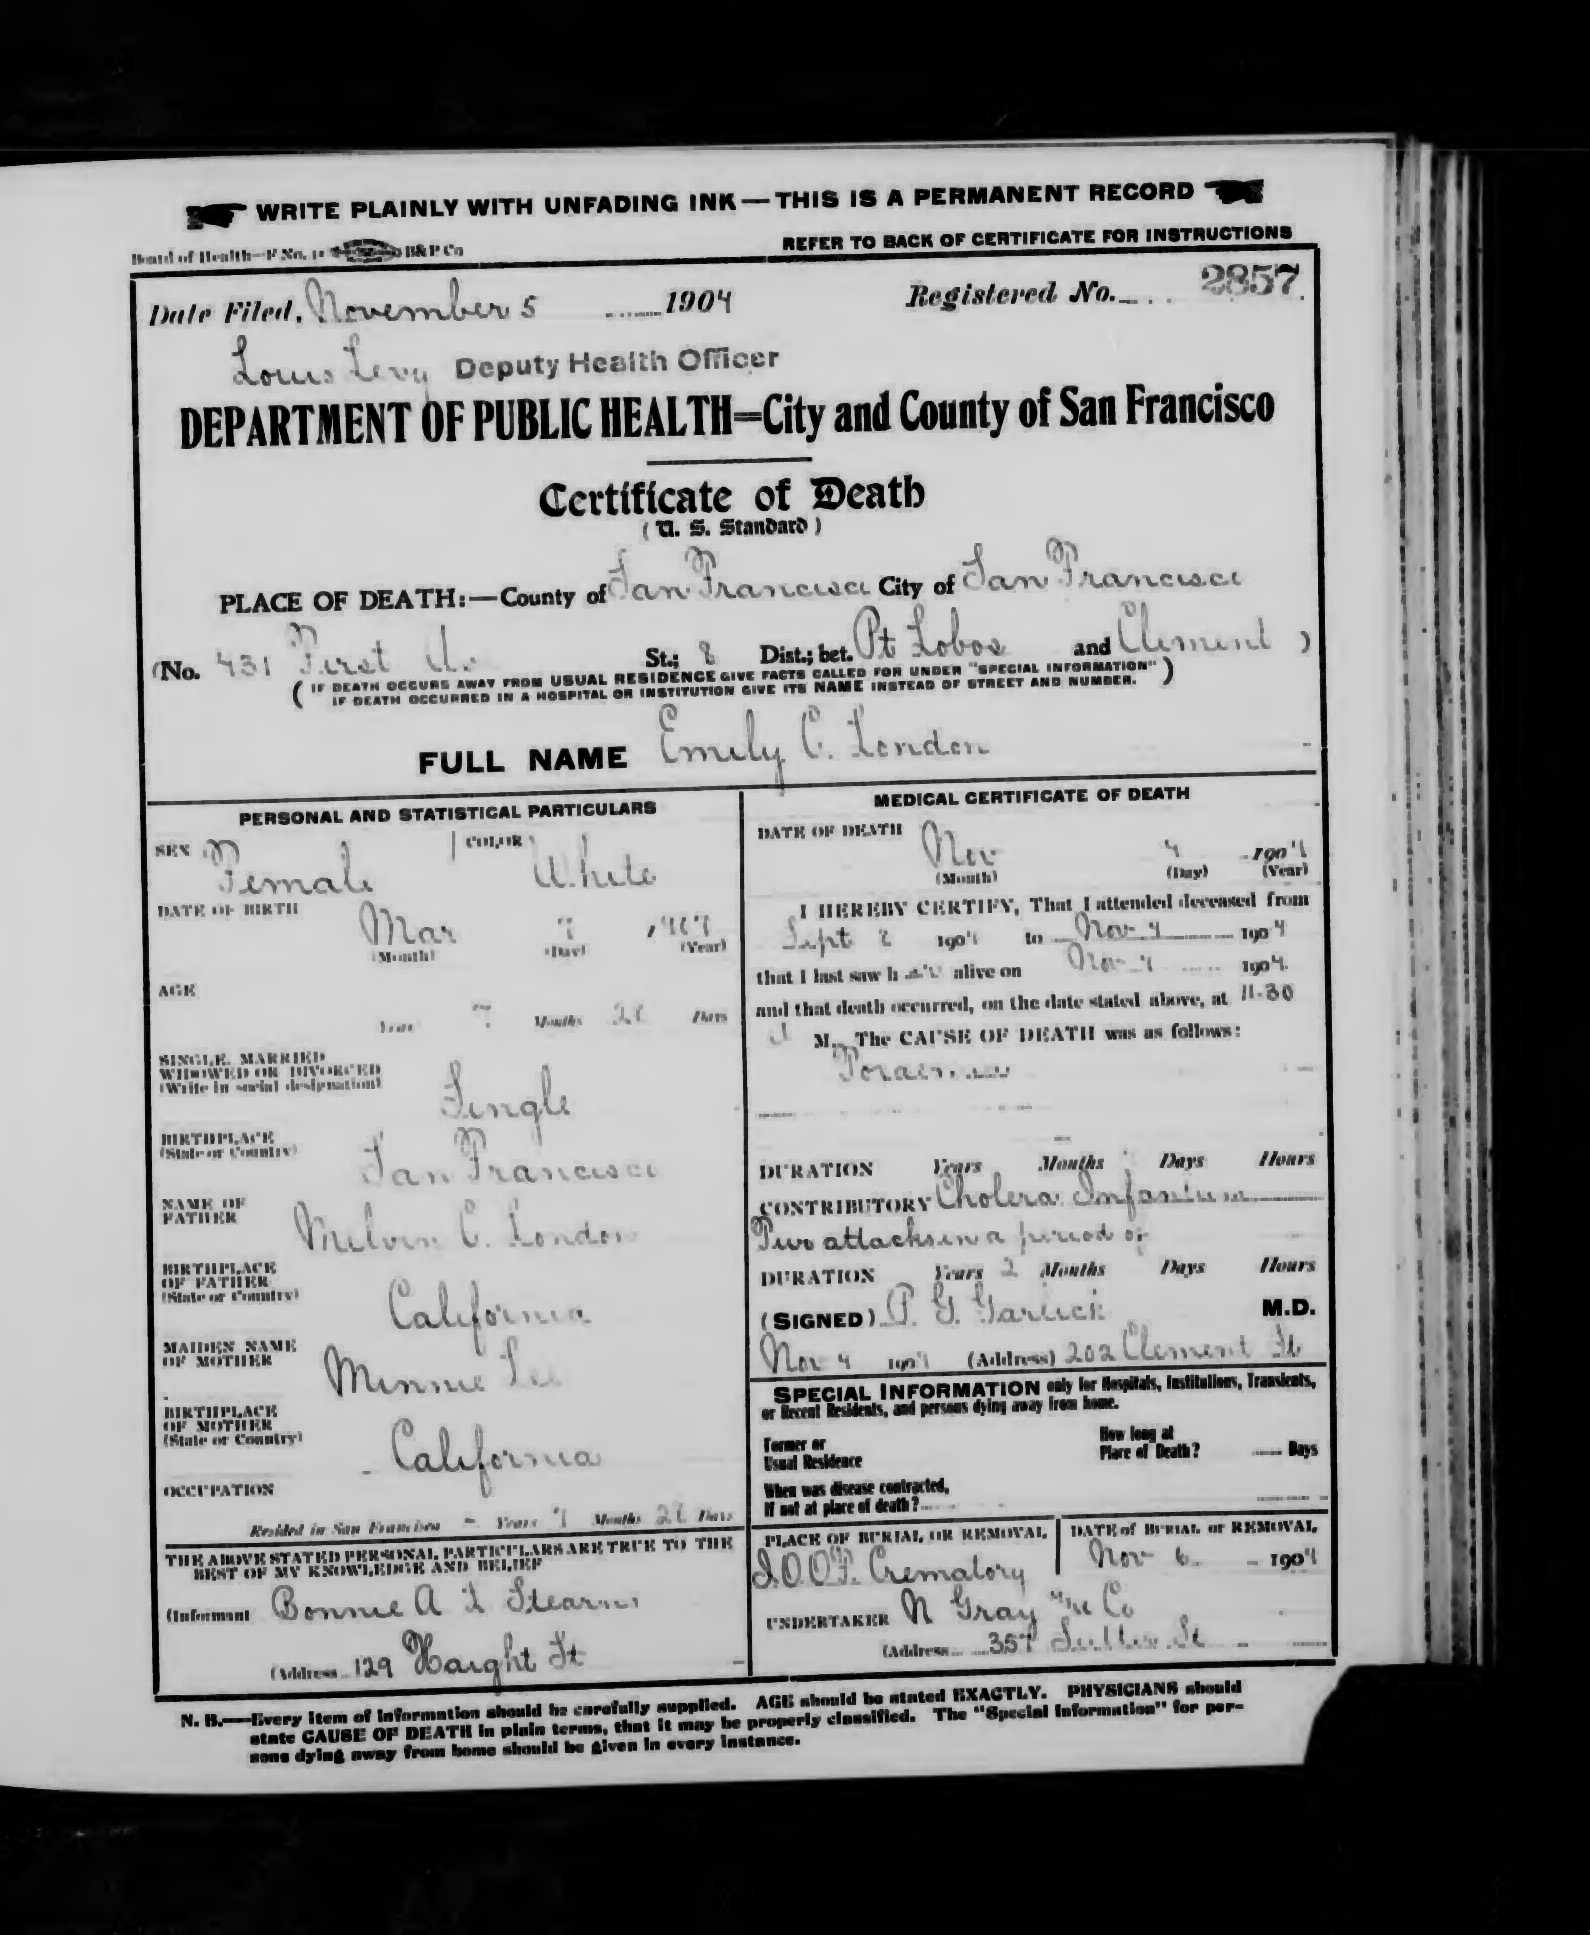 WRITE PLAINLY WITH UNFADING INK — THIS IS A PERMANENT RECORD
Board of Health—F No. B&P Co
REFER TO BACK OF CERTIFICATE FOR INSTRUCTIONS
Date Filed, November 5 1904 Registered No. 2857
Louis Levy Deputy Health Officer
DEPARTMENT OF PUBLIC HEALTH=City and County of San Francisco
Certificate of Death
( U. S. Standard )
PLACE OF DEATH:—County of San Francisco City of San Francisco
(No. 431 First Av St.; 8 Dist.; bet. Pt Lobos and Clement )
( IF DEATH OCCURS AWAY FROM USUAL RESIDENCE GIVE FACTS CALLED FOR UNDER "SPECIAL INFORMATION" )
IF DEATH OCCURRED IN A HOSPITAL OR INSTITUTION GIVE ITS NAME INSTEAD OF STREET AND NUMBER.
FULL NAME Emily C. London
PERSONAL AND STATISTICAL PARTICULARS
SEX Female COLOR White
DATE OF BIRTH
Mar 7
(Month) (Day) (Year)
AGE
Years 7 Months Days
SINGLE, MARRIED
WIDOWED OR DIVORCED
(Write in social designation)
Single
BIRTHPLACE
(State or Country)
San Francisco
NAME OF
FATHER
Melvin C. London
BIRTHPLACE
OF FATHER
(State or Country)
California
MAIDEN NAME
OF MOTHER
Minnie Lee
BIRTHPLACE
OF MOTHER
(State or Country)
California
OCCUPATION
Resided in San Francisco - Years 7 Months Days
THE ABOVE STATED PERSONAL PARTICULARS ARE TRUE TO THE
BEST OF MY KNOWLEDGE AND BELIEF
(Informant Bonnie A L Stearns
(Address 129 Haight St
MEDICAL CERTIFICATE OF DEATH
DATE OF DEATH
Nov 4 1904
(Month) (Day) (Year)
I HEREBY CERTIFY, That I attended deceased from
Sept 8 1904 to Nov 4 1904
that I last saw h er alive on Nov 4 1904
and that death occurred, on the date stated above, at 11-30
M. The CAUSE OF DEATH was as follows:
DURATION Years Months Days Hours
CONTRIBUTORY Cholera Infantum
Two attacks in a period of
DURATION Years 2 Months Days Hours
(SIGNED) P. G. Garlick M.D.
Nov 4 1904 (Address) 202 Clement St
SPECIAL INFORMATION only for Hospitals, Institutions, Transients,
or Recent Residents, and persons dying away from home.
Former or
Usual Residence
How long at
Place of Death? Days
When was disease contracted,
If not at place of death?
PLACE OF BURIAL OR REMOVAL
I.O.O.F. Crematory
DATE of BURIAL or REMOVAL
Nov 6 1904
UNDERTAKER N Gray & Co
(Address 357 Sutter St
N. B.—Every item of information should be carefully supplied. AGE should be stated EXACTLY. PHYSICIANS should
state CAUSE OF DEATH in plain terms, that it may be properly classified. The "Special Information" for per-
sons dying away from home should be given in every instance.